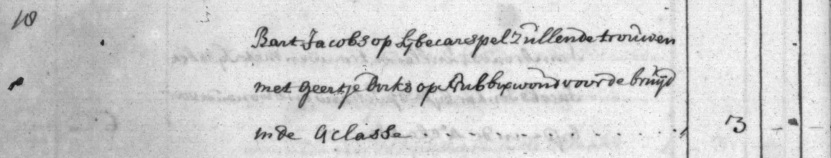 18
Bart Jacobs op Lijbecarspel zullende trouwen
met Geertje Dirks op Lubbixwoud voor de bruijd
in de 4 classe . . . . . . . 3 -